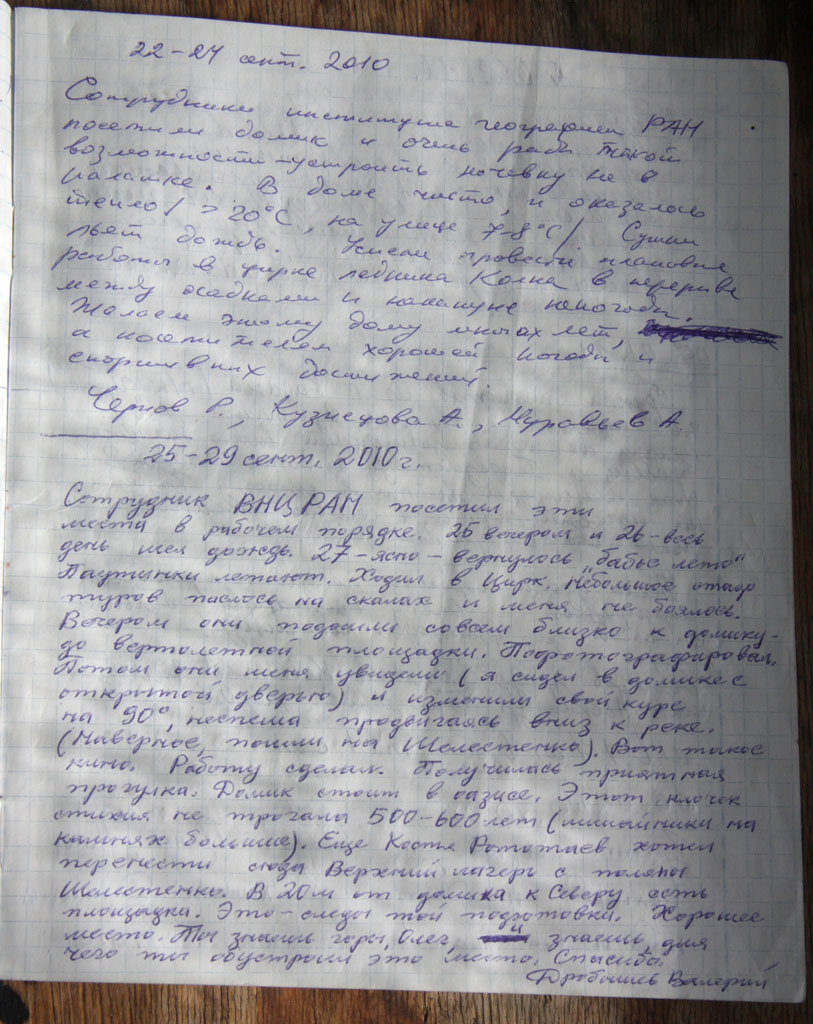 22-24 сент. 2010
Сотрудники института географии РАН
посетили домик и очень рады такой
возможности - устроить ночевку не в
палатке. В доме чисто, и оказалось
тепло / > 20°С, на улице 7-8°С/. Сутки
льет дождь. Успели провести плановые
работы в цирке ледника Колка в перерыве
между осадками и накануне непогоды.
Желаем этому дому многих лет,
а посетителям хорошей погоды и
спортивных достижений.
Чернов Р., Кузнецова А., Муравьев А
25-29 сент. 2010г.
Сотрудник ВНЦ РАН посетил эти
места в рабочем порядке. 25 вечером и 26-весь
день шел дождь. 27-ясно - вернулось „бабье лето"
Паутинки летают. Ходил в Цирк. Небольшое стадо
туров паслось на скалах и меня не боялось.
Вечером они подошли совсем близко к домику-
до вертолетной площадки. Пофотографировал.
Потом они меня увидели (я сидел в домике с
открытой дверью) и изменили свой курс
на 90°, неспеша продвигаясь вниз к реке.
(Наверное, пошли на Шелестенко). Вот такое
кино. Работу сделал. Получилась приятная
прогулка. Домик стоит в оазисе. Этот клочок
стихия не трогала 500-600 лет (лишайники на
камнях большие). Еще Костя Рототаев хотел
перенести сюда Верхний лагерь с поляны
Шелестенко. В 20м от домика к Северу есть
площадка. Это-следы той подготовки. Хорошее
место. Ты знаешь горы, Олег, и знаешь, для
чего ты обустроил это место. Спасибо.
Дробышев Валерий